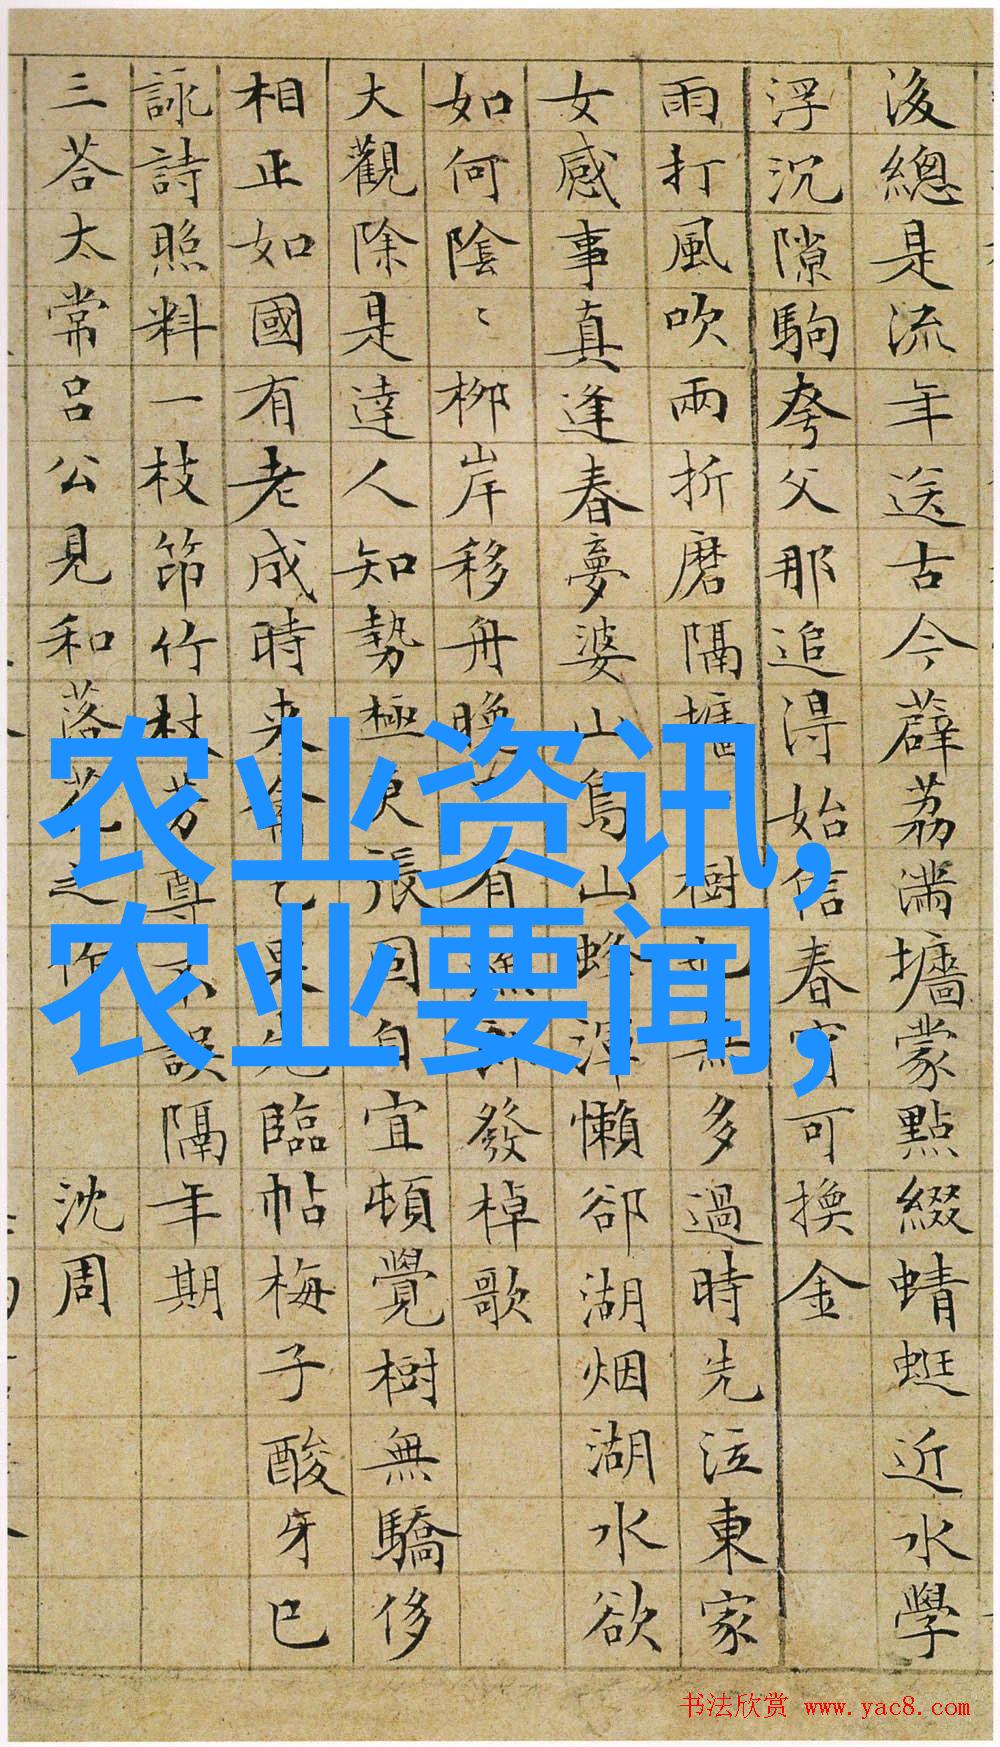 後總是流年送古今薜荔滿墻蒙點綴蜻蜓近水學
浮沉隙駒夸父那追得始信春宵可換金
雨打風吹兩折磨隔墻樹也無多過時先泣東家
女感事真逢春夢婆山鳥山蜂渾懶卻湖烟湖水欲
如何陰〻柳岸移舟晚有漁郎發棹歌
大觀除是達人知勢極更張固自宜頓覺樹無驕侈
相正如國有老成時来禽已果先臨帖梅子酸牙已
詠詩照料一枝笻竹杖芳尊不誤隔年期
三荅太常呂公見和落花之作 沈周
农业资讯,
农业要闻,
书法欣赏 www.yac8.com